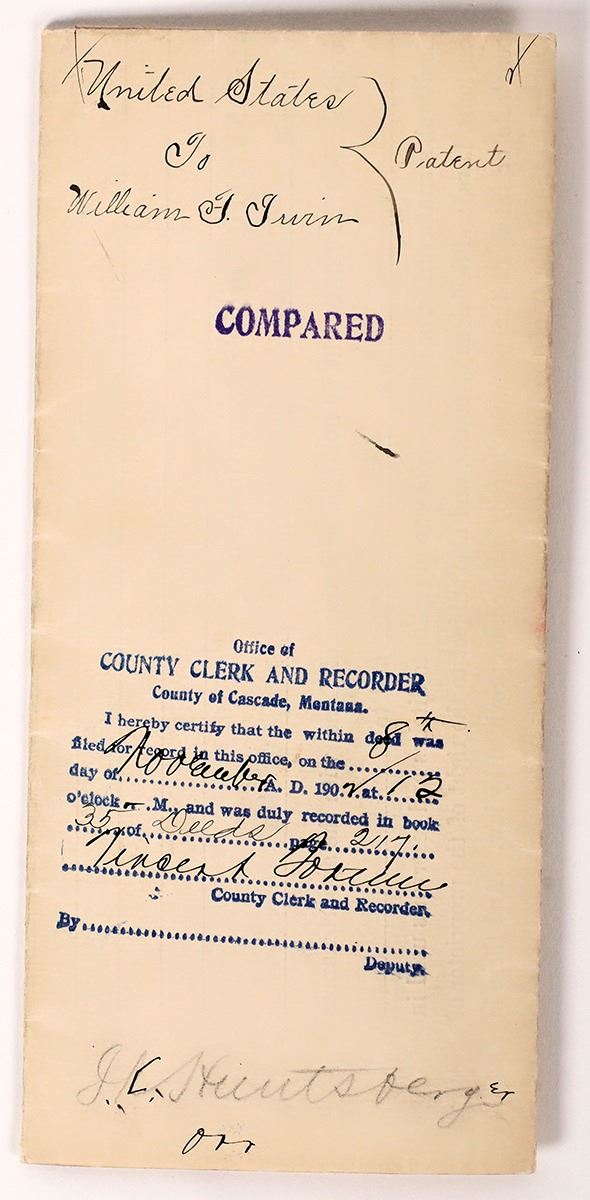 United States
To
William F. Irwin
Patent
COMPARED
Office of
COUNTY CLERK AND RECORDER
County of Cascade, Montana.
I hereby certify that the within deed was
filed for record in this office, on the 8th
day of November A. D. 1902 at 12
o'clock M., and was duly recorded in book
35 of Deeds page 217.
Vincent
County Clerk and Recorder.
By
Deputy.
J. K. Huntsberger